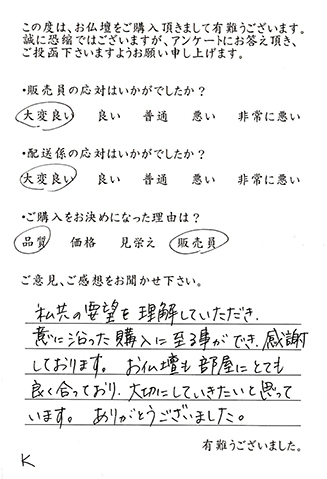 この度は、お仏壇をご購入頂きまして有難うございます。
誠に恐縮ではございますが、アンケートにお答え頂き、
ご投函下さいますようお願い申し上げます。
・販売員の応対はいかがでしたか？
大変良い 良い 普通 悪い 非常に悪い
・配送係の応対はいかがでしたか？
大変良い 良い 普通 悪い 非常に悪い
・ご購入をお決めになった理由は？
品質 価格 見栄え 販売員
ご意見、ご感想をお聞かせ下さい。
私共の要望を理解していただき、
意に沿った購入に至る事ができ、感謝
しております。お仏壇も部屋にとても
良く合っており、大切にしていきたいと思って
います。ありがとうございました。
有難うございました。
K